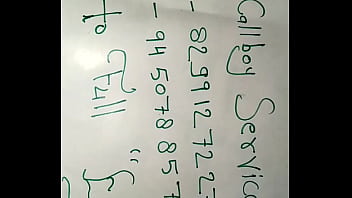 Call boy Servic
- 8299127227
- 945078857
to Full